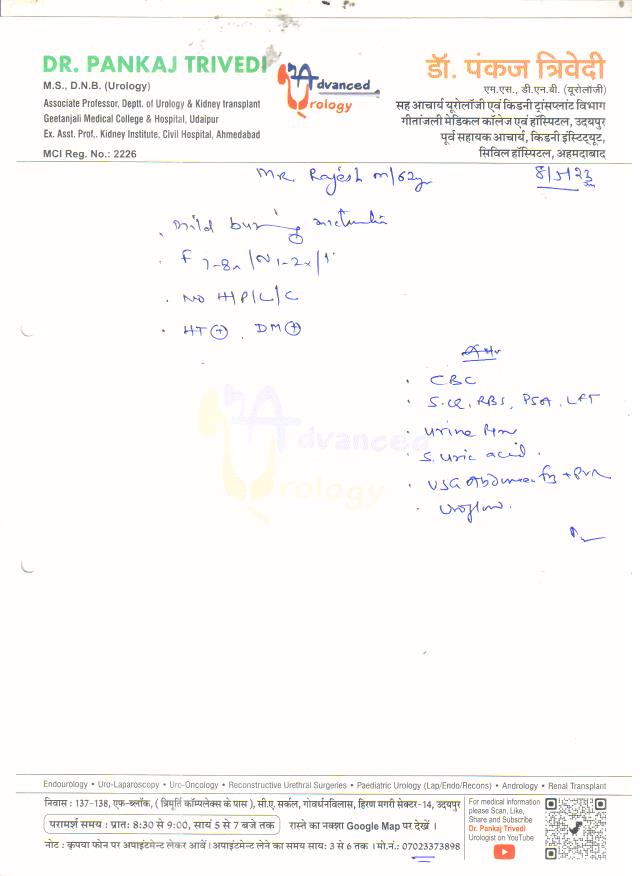 DR. PANKAJ TRIVEDI
M.S., D.N.B. (Urology)
Associate Professor, Deptt. of Urology & Kidney transplant
Geetanjali Medical College & Hospital, Udaipur
Ex. Asst. Prof,. Kidney Institute, Civil Hospital, Ahmedabad
MCI Reg. No.: 2226
Advanced
Urology
डॉ. पंकज त्रिवेदी
एम.एस., डी.एन.बी. (यूरोलॉजी)
सह आचार्य यूरोलॉजी एवं किडनी ट्रांसप्लांट विभाग
गीतांजली मेडिकल कॉलेज एवं हॉस्पिटल, उदयपुर
पूर्व सहायक आचार्य, किडनी इंस्टिट्यूट,
सिविल हॉस्पिटल, अहमदाबाद
Mr Rajesh m/62y
8/5/23
Mild burning micturition
F 7-8x/N 1-2x/
NO H/P/L/C
HT (+), DM (+)
CBC
S.CR, RBS, PSA, LFT
Urine
S. Uric acid.
USG Abdomen + PVR
Uroflow.
Advanced
Urology
Endourology • Uro-Laparoscopy • Uro-Oncology • Reconstructive Urethral Surgeries • Paediatric Urology (Lap/Endo/Recons) • Andrology • Renal Transplant
निवास : 137-138, एफ-ब्लॉक, ( त्रिमूर्ति कॉम्पलेक्स के पास ), सी.ए. सर्कल, गोवर्धनविलास, हिरण मगरी सेक्टर-14, उदयपुर
परामर्श समय : प्रात: 8:30 से 9:00, सायं 5 से 7 बजे तक रास्ते का नक्शा Google Map पर देखें ।
नोट : कृपया फोन पर अपाइंटमेन्ट लेकर आवें । अपाइंटमेन्ट लेने का समय सायं: 3 से 6 तक । मो.नं.: 07023373898
For medical information
please Scan, Like,
Share and Subscribe
Dr. Pankaj Trivedi
Urologist on YouTube